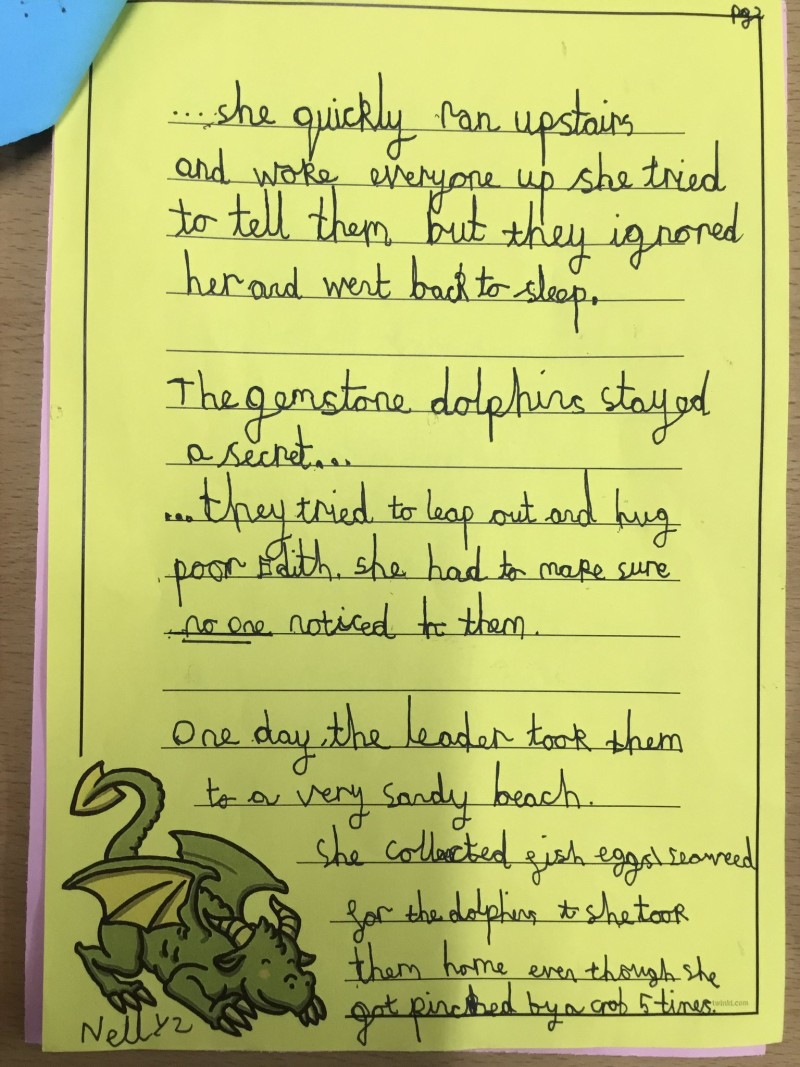 pg2
....she quickly ran upstairs
and woke everyone up she tried
to tell them but they ignored
her and went back to sleep.
The gemstone dolphins stayed
a secret...
...they tried to leap out and hug
poor Edith. she had to make sure
no one noticed them.
One day, the leader took them
to a very sandy beach.
She collected fish eggs\seaweed
for the dolphins & she took
them home even though she
got pinched by a crab 5 times.
twinkl.com
Nelly Y2